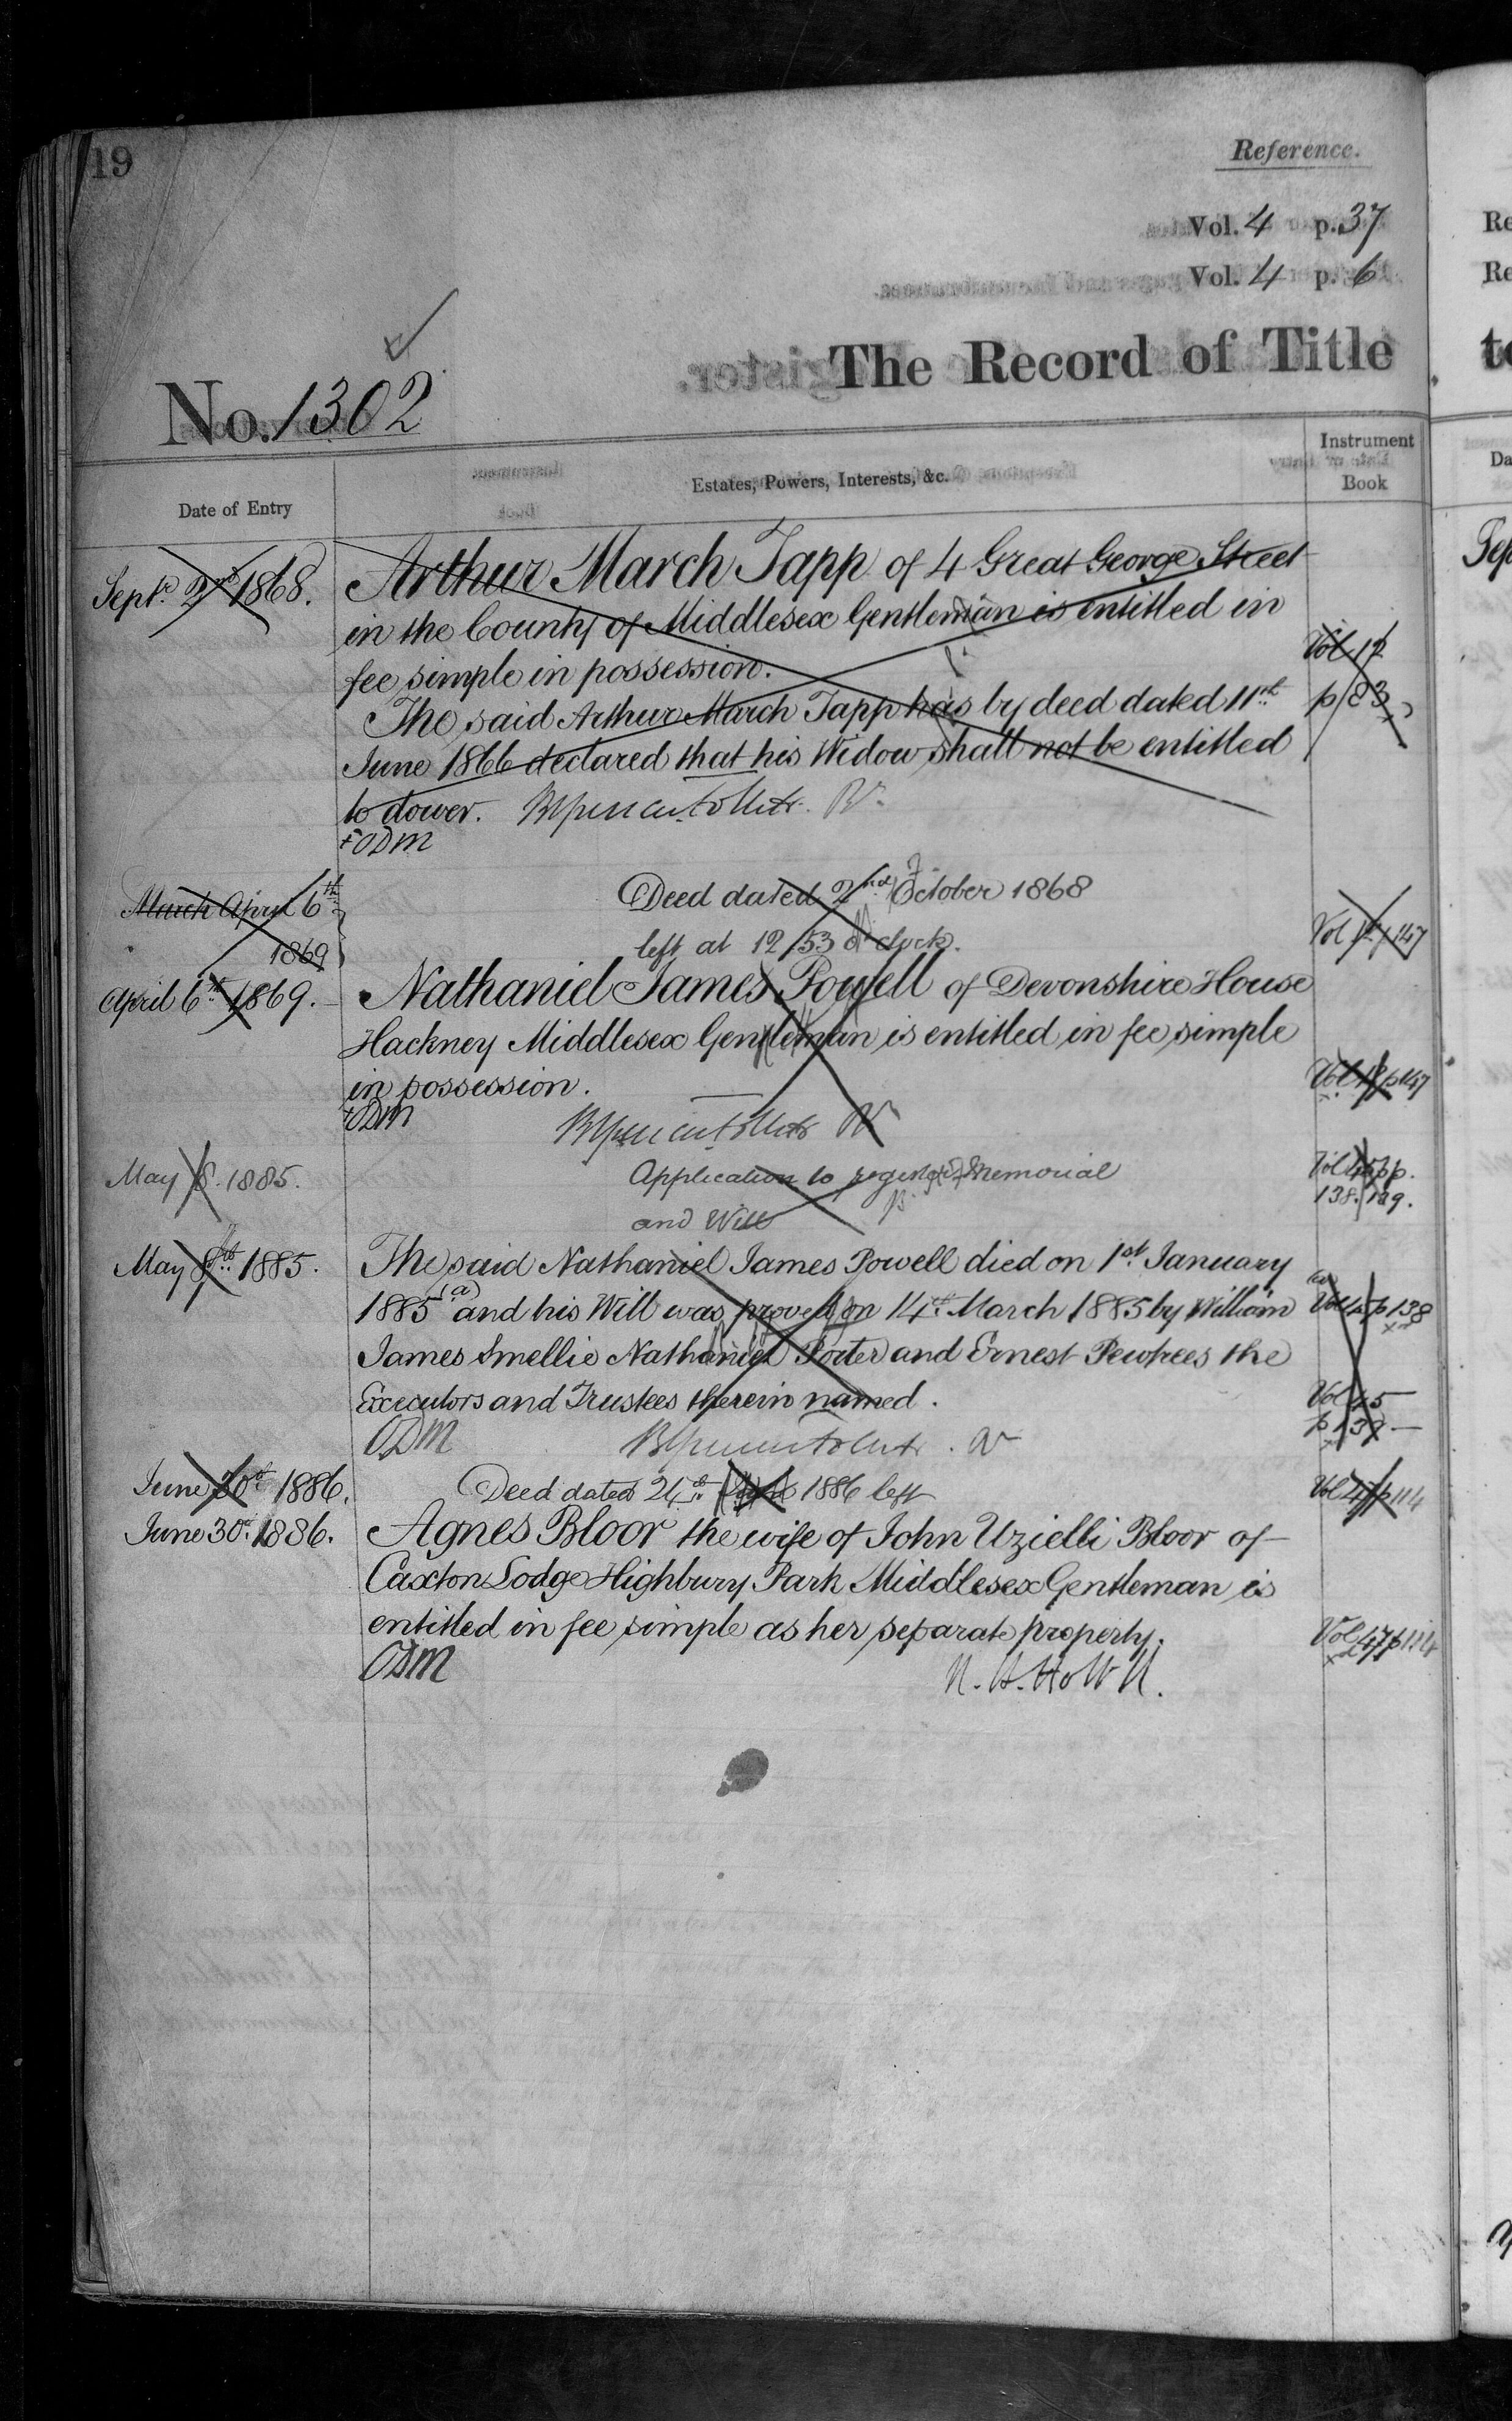 19
Reference.
Vol. 4 p. 37
Vol. 4 p. 6
The Record of Title
No. 1302
Date of Entry
Estates, Powers, Interests, &c.
Instrument
Book
Sept. 2nd 1868.
Arthur March Tapp of 4 Great George Street
in the County of Middlesex Gentleman is entitled in
fee simple in possession.
Vol 12
p 83
The said Arthur March Tapp has by deed dated 11th
June 1866 declared that his Widow shall not be entitled
to dower.
ODM
March April 6th
1869
Deed dated 2nd October 1868
left at 12/53 o'clock.
Vol p 147
April 6th 1869.
Nathaniel James Powell of Devonshire House
Hackney Middlesex Gentleman is entitled in fee simple
in possession.
Vol p 147
ODM
May 8. 1885.
Application to register Memorial
and Will
Vol 45 pp.
138. 139.
May 8th 1885.
The said Nathaniel James Powell died on 1st January
1885 (a) and his Will was proved on 14th March 1885 by William
James Smellie Nathaniel Porter and Ernest the
Executors and Trustees therein named.
(a)
Vol 45 p 138
Vol 45
p 139
ODM
June 30th 1886.
Deed dated 24th 1886 left
Vol 47 p 114
June 30th 1886.
Agnes Bloor the wife of John Uzielli Bloor of
Caxton Lodge Highbury Park Middlesex Gentleman is
entitled in fee simple as her separate property.
Vol 47 p 114
ODM
Re
Re
to
Da